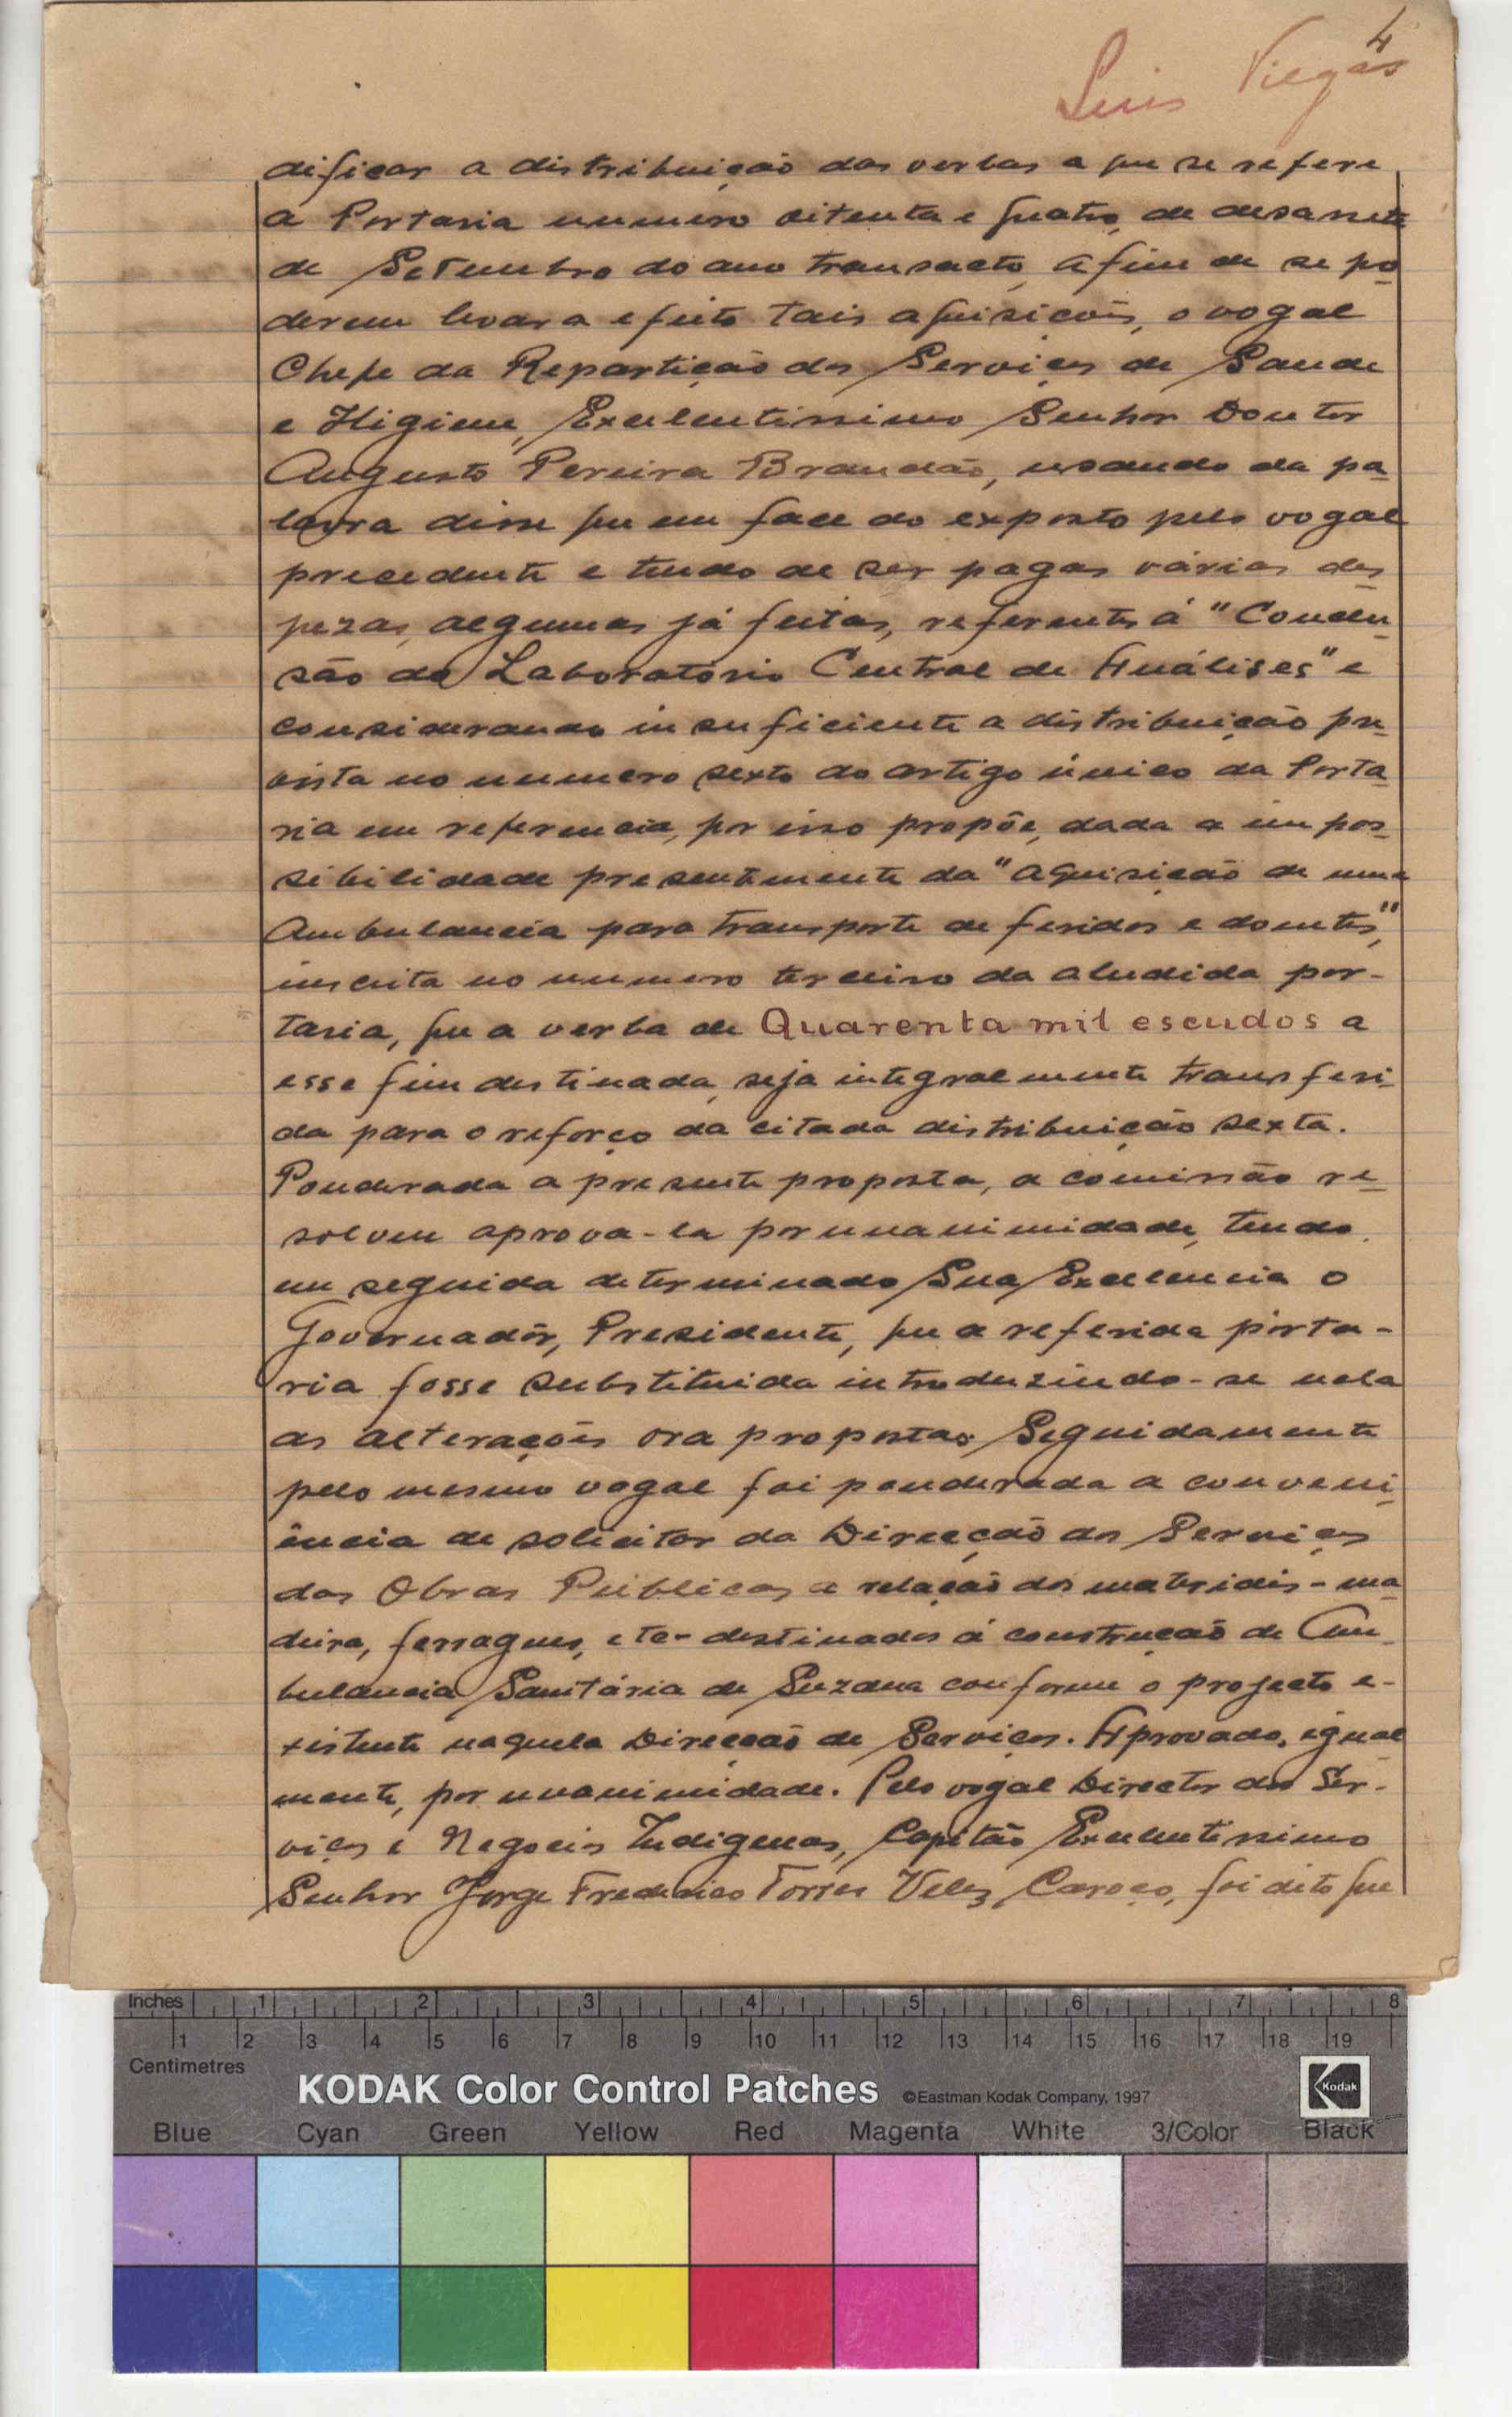 4
Luis Viegas
dificar a distribuição das verbas a que se refere
a Portaria numero oitenta e quatro, de desasete
de Setembro do ano transacto, afim de se po
derem levar a efeito tais aquisições, o vogal
Chefe da Repartição dos Serviços de Saude
e Higiene, Excelentissimo Senhor Doutor
Augusto Pereira Brandão, usando da pa
lavra disse que em face do exposto pelo vogal
precedente e tendo de ser pagas várias des
pezas, algumas já feitas, referentes á "Conclu
são do Laboratório Central de Análises" e
considerando insuficiente a distribuição pre
vista no numero sexto do artigo único da Porta
ria em referencia, por isso propõe, dada a impos
sibilidade presentemente da "aquisição de uma
Ambulancia para transporte de feridos e doentes",
inscrita no numero terceiro da aludida por-
taria, que a verba de Quarenta mil escudos a
esse fim destinada, seja integralmente transferi
da para o reforço da citada distribuição sexta.
Ponderada a presente proposta, a comissão re
solveu aprova-la por unanimidade, tendo
em seguida determinado Sua Excelencia o
Governadôr, Presidente, que a referida porta-
ria fosse substituida introduzindo-se nela
as alterações ora propostas. Seguidamente
pelo mesmo vogal foi ponderada a conveni
ência de solicitar da Direcção dos Serviços
das Obras Públicas a relação dos materiais - ma
deira, ferragens, etc - destinados á construção de Am
bulancia Sanitária de Suzana conforme o projecto e-
xistente naquela Direcção de Serviços. Aprovado, igual
mente, por unanimidade. Pelo vogal Director dos Ser-
viços e Negocios Indigenas, Capitão Excelentissimo
Senhor Jorge Frederico Torres Velez Caroço, foi dito que
Inches 1 2 3 4 5 6 7 8
1 2 3 4 5 6 7 8 9 10 11 12 13 14 15 16 17 18 19
Centimetres
KODAK Color Control Patches ©Eastman Kodak Company, 1997 Kodak
Blue Cyan Green Yellow Red Magenta White 3/Color Black